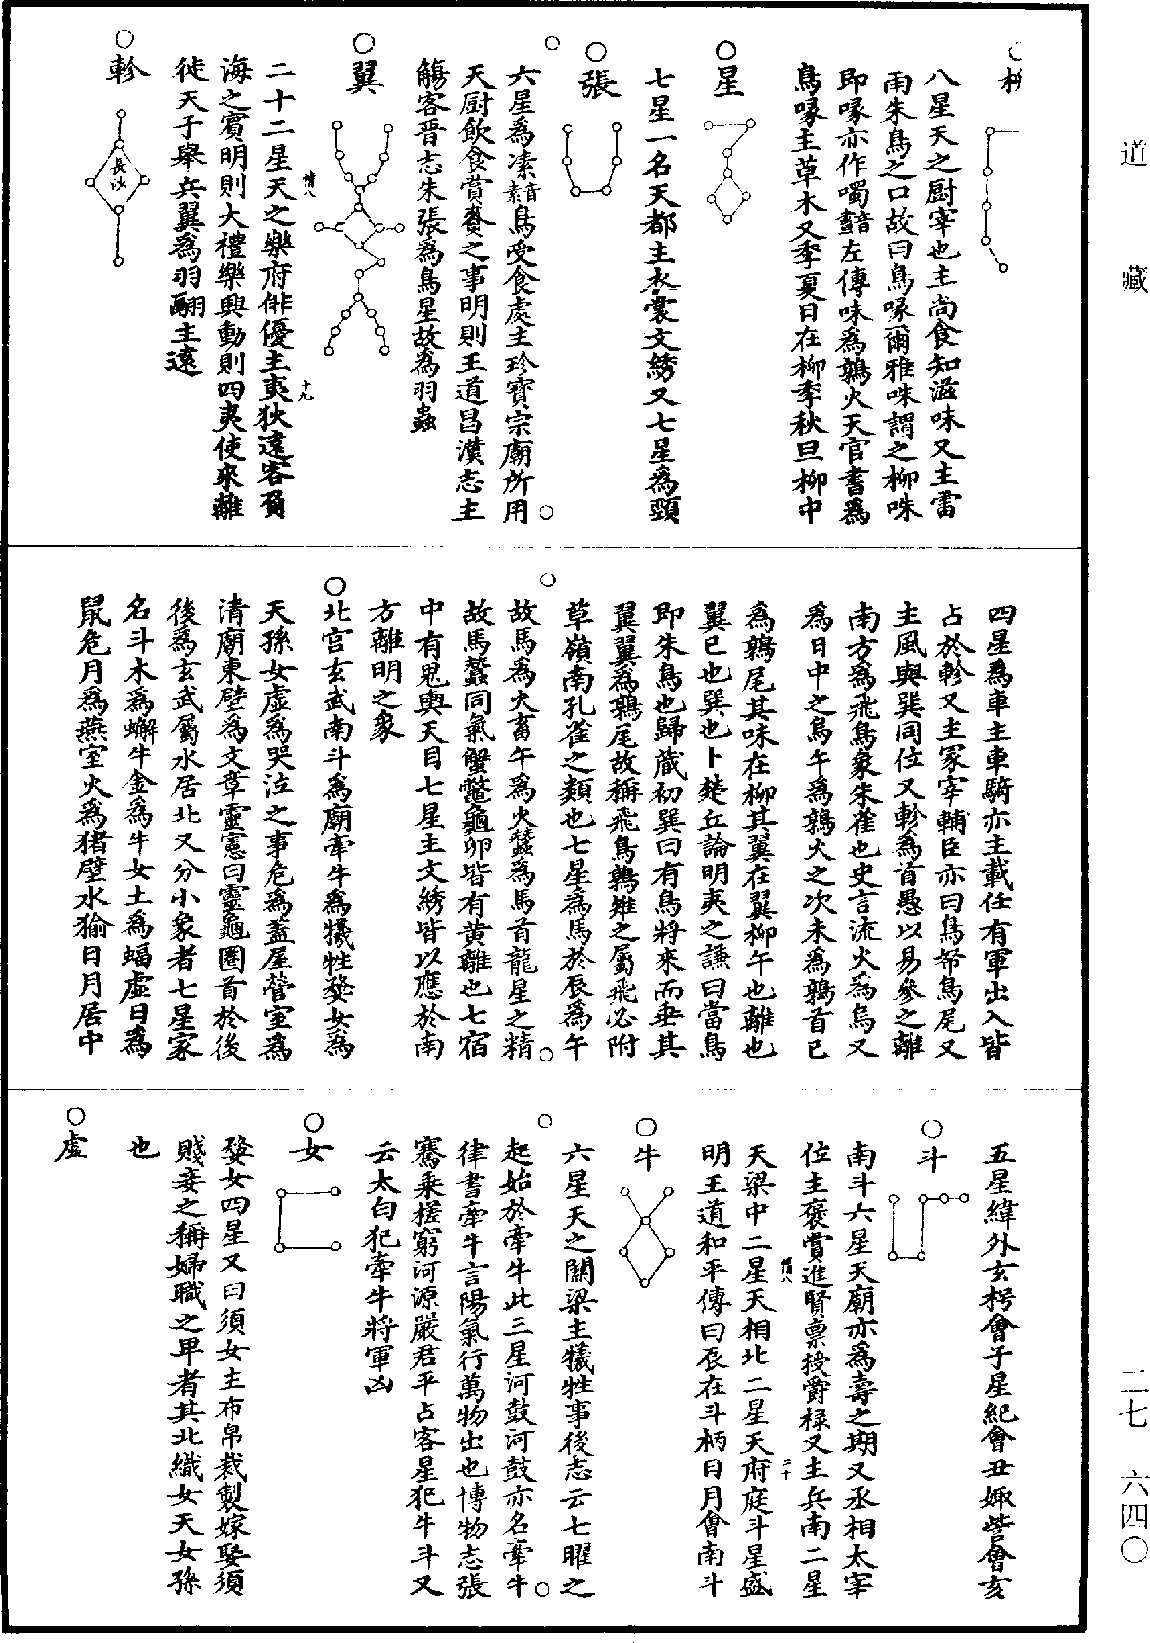 柳
八星天之厨宰也主尚食知滋味又主雷
雨朱鳥之口故曰鳥喙爾雅咮謂之柳咮
即喙亦作噣音晝左傳味為鶉火天官書為
鳥喙主草木又季夏日在柳季秋旦柳中
○星
七星一名天都主衣裳文綉又七星為頸
○張
六星為溸音素鳥受食處主珍寶宗廟所用
天厨飲食賞賚之事明則王道昌漢志主
觴客晋志朱張為鳥星故為羽蟲
○翼
二十二星天之樂府俳優主夷狄遠客負
海之賓明則大禮樂興動則四夷使來離
徙天子舉兵翼為羽翮主遠
○軫
長沙
四星為車主車騎亦主載任有軍出入皆
占於軫又主冢宰輔臣亦曰鳥帑鳥尾又
主風與巽同位又軫為首愚以易參之離
南方為飛鳥象朱雀也史言流火為烏又
為日中之烏午為鶉火之次未為鶉首巳
為鶉尾其味在柳其翼在翼柳午也離也
翼巳也巽也卜楚丘論明夷之謙曰當鳥
即朱鳥也歸藏初巽曰有鳥將來而垂其
翼翼為鶉尾故稱飛鳥鶉雉之屬飛必附
草嶺南孔雀之類也七星為馬於辰為午
故馬為火畜午為火蠶為馬首龍星之精
故馬蠶同氣蟹鼈龜卯皆有黄離也七宿
中有鬼輿天目七星主文綉皆以應於南
方離明之象
○北宫玄武南斗為廟牽牛為犧牲婺女為
天孫女虛為哭泣之事危為蓋屋營室為
清廟東壁為文章靈憲曰靈龜圈首於後
後為玄武屬水居北又分小象者七星家
名斗木為獬牛金為牛女土為蝠虛日為
鼠危月為燕室火為猪壁水㺄日月居中
五星緯外玄枵會子星紀會丑娵訾會亥
○斗
南斗六星天廟亦為壽之期又丞相太宰
位主褒賞進賢禀授爵禄又主兵南二星
天梁中二星天相北二星天府庭斗星盛
明王道和平傳曰辰在斗柄日月會南斗
○牛
六星天之關梁主犧牲事後志云七曜之
起始於牽牛此三星河鼓河鼓亦名牽牛
律書牽牛言陽氣行萬物出也博物志張
騫乘槎窮河源嚴君平占客星犯牛斗又
云太白犯牽牛將軍凶
○女
婺女四星又曰須女主布帛裁製嫁娶須
賤妾之稱婦職之卑者其北織女天女孫
也
○虛
道藏
二七 六四〇